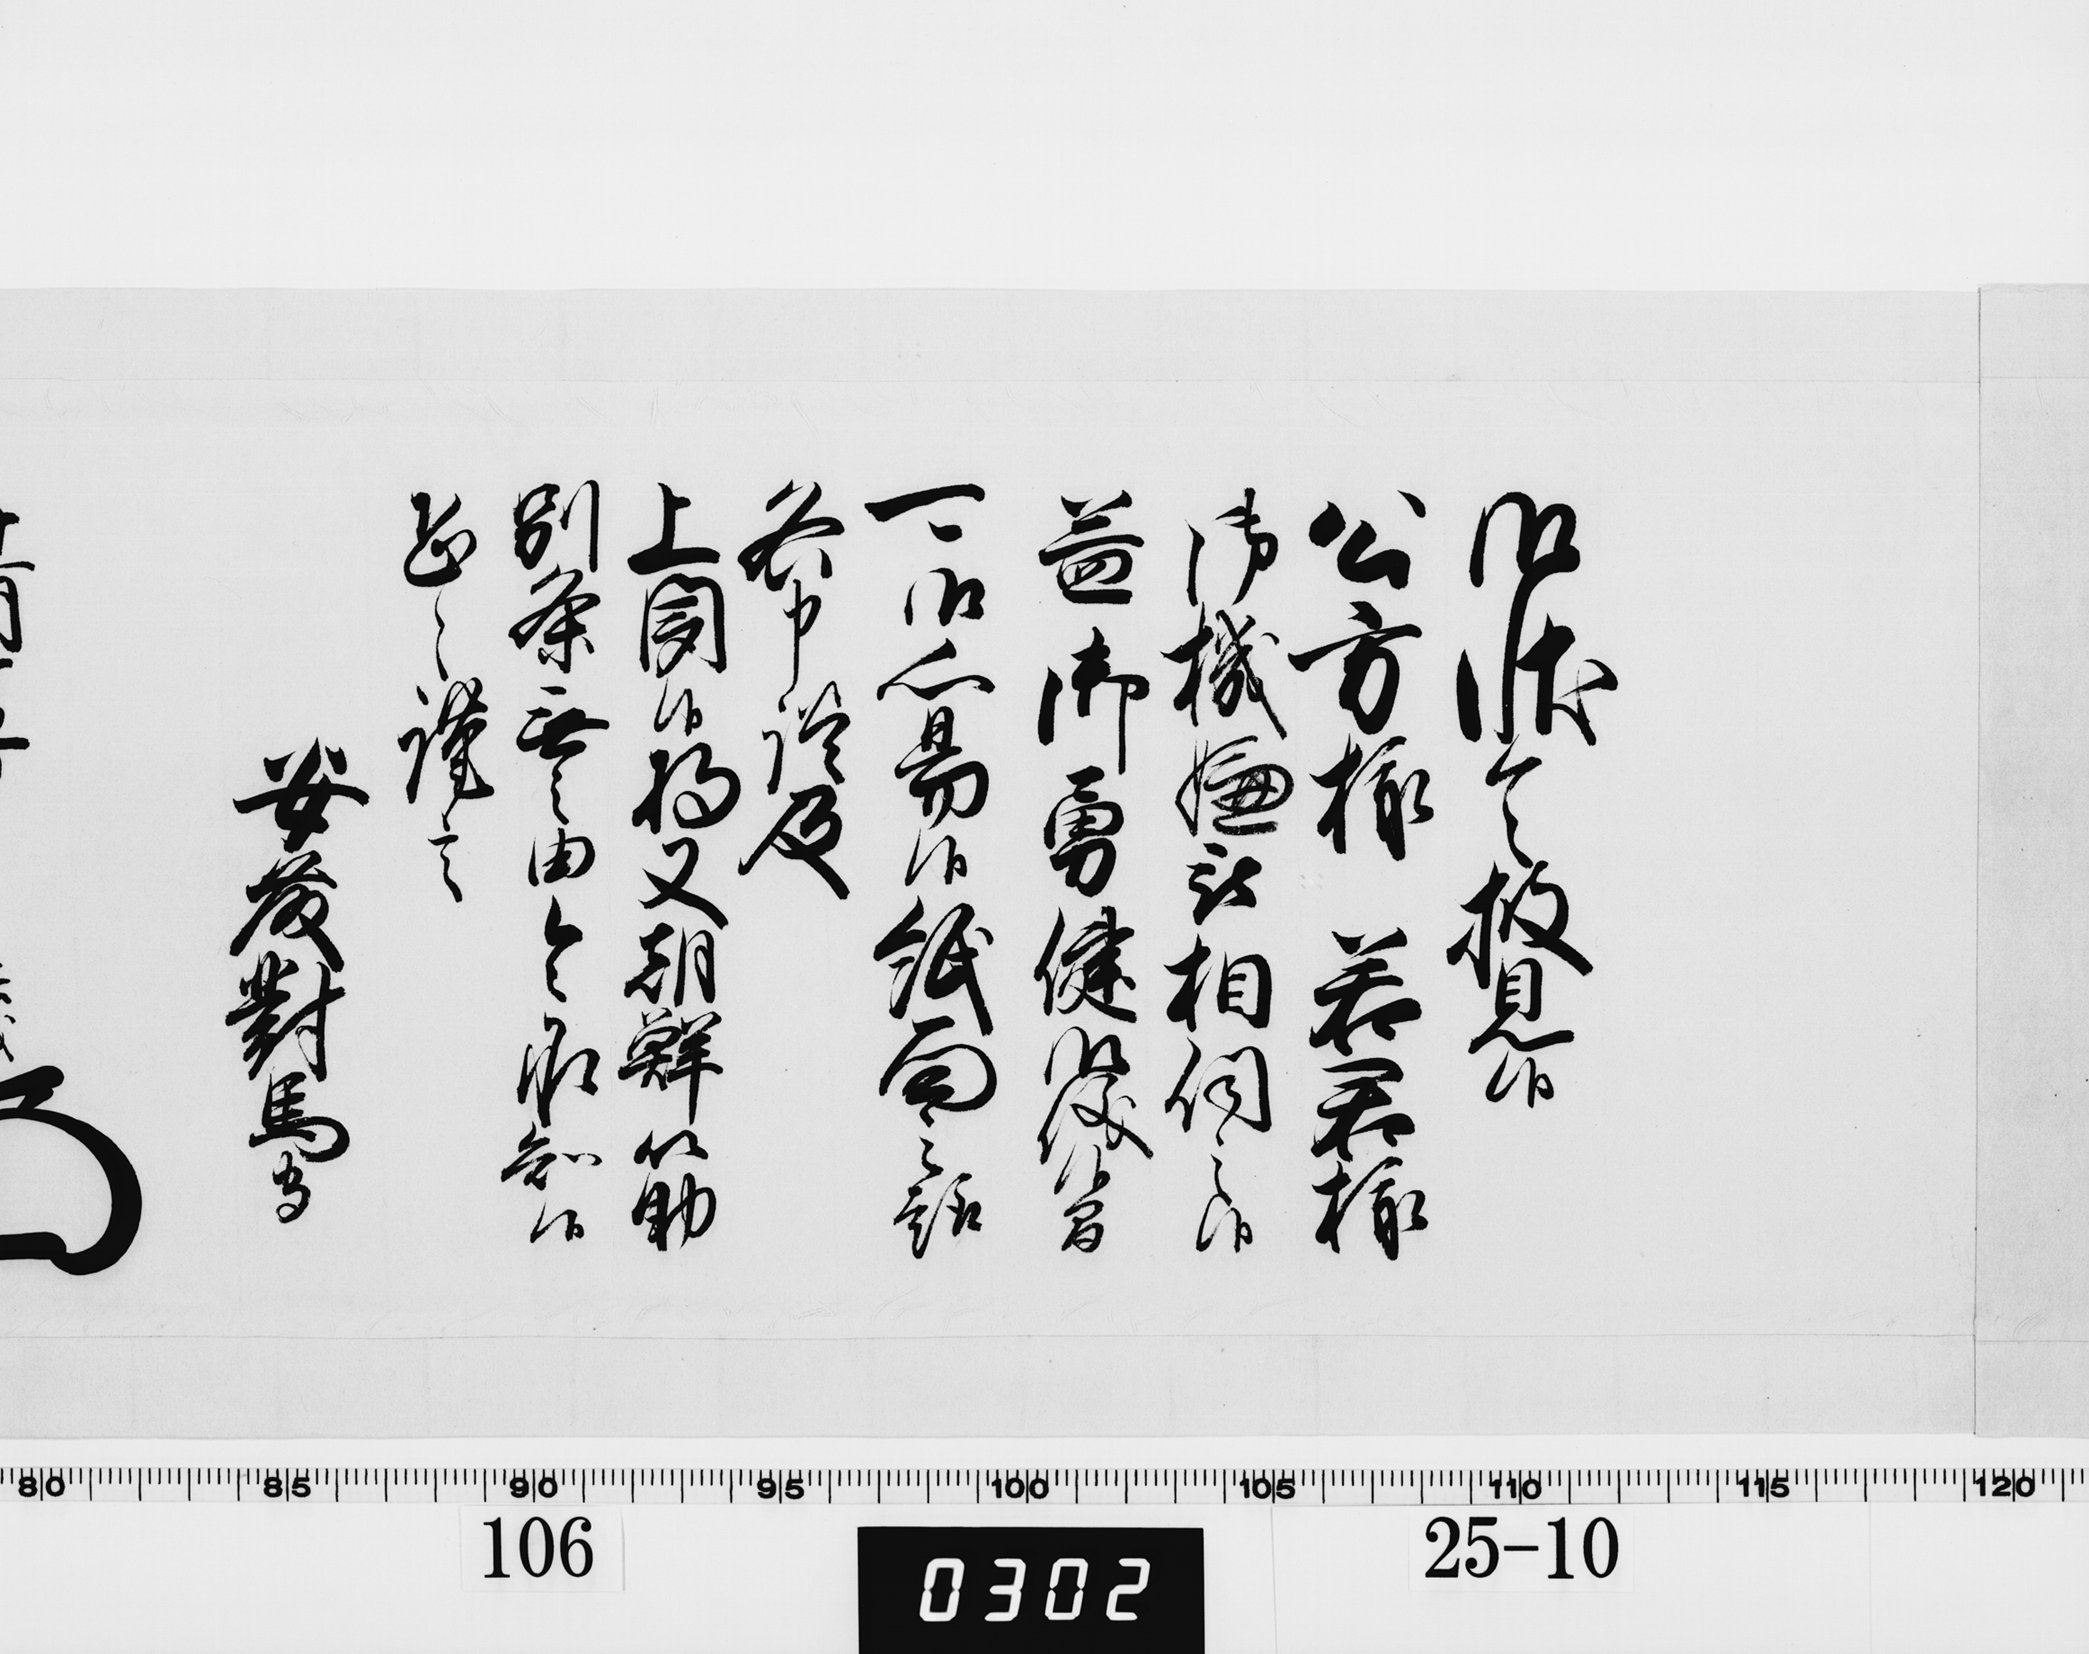 御状令披見候
公方様 若君様
御機嫌被相伺之候
益御勇健御座候間
可御心易候紙面之趣
各申談及
上聞候将又朝鮮筋
別条無之由令承知候
恐々謹言
安藤對馬守
0302
80 85 90 95 100 105 110 115 120
106
25-10